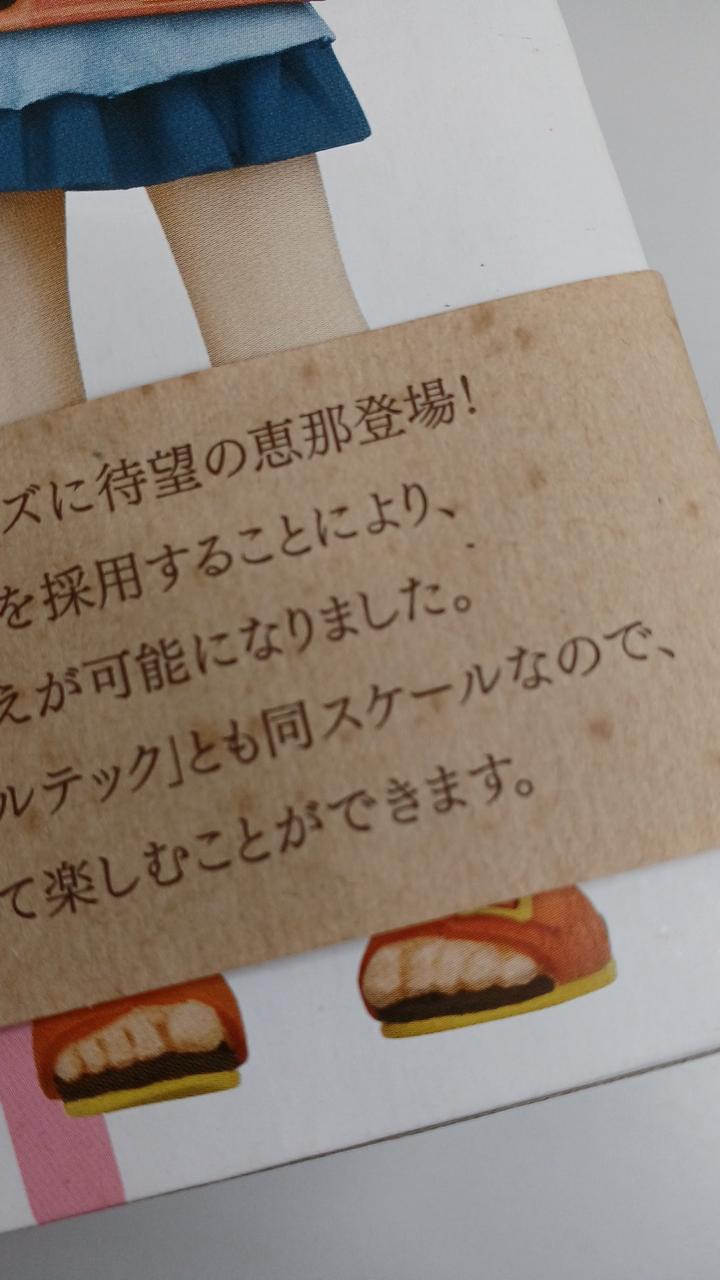 ズに待望の恵那登場!
を採用することにより、
えが可能になりました。
ルテック」とも同スケールなので、
て楽しむことができます。